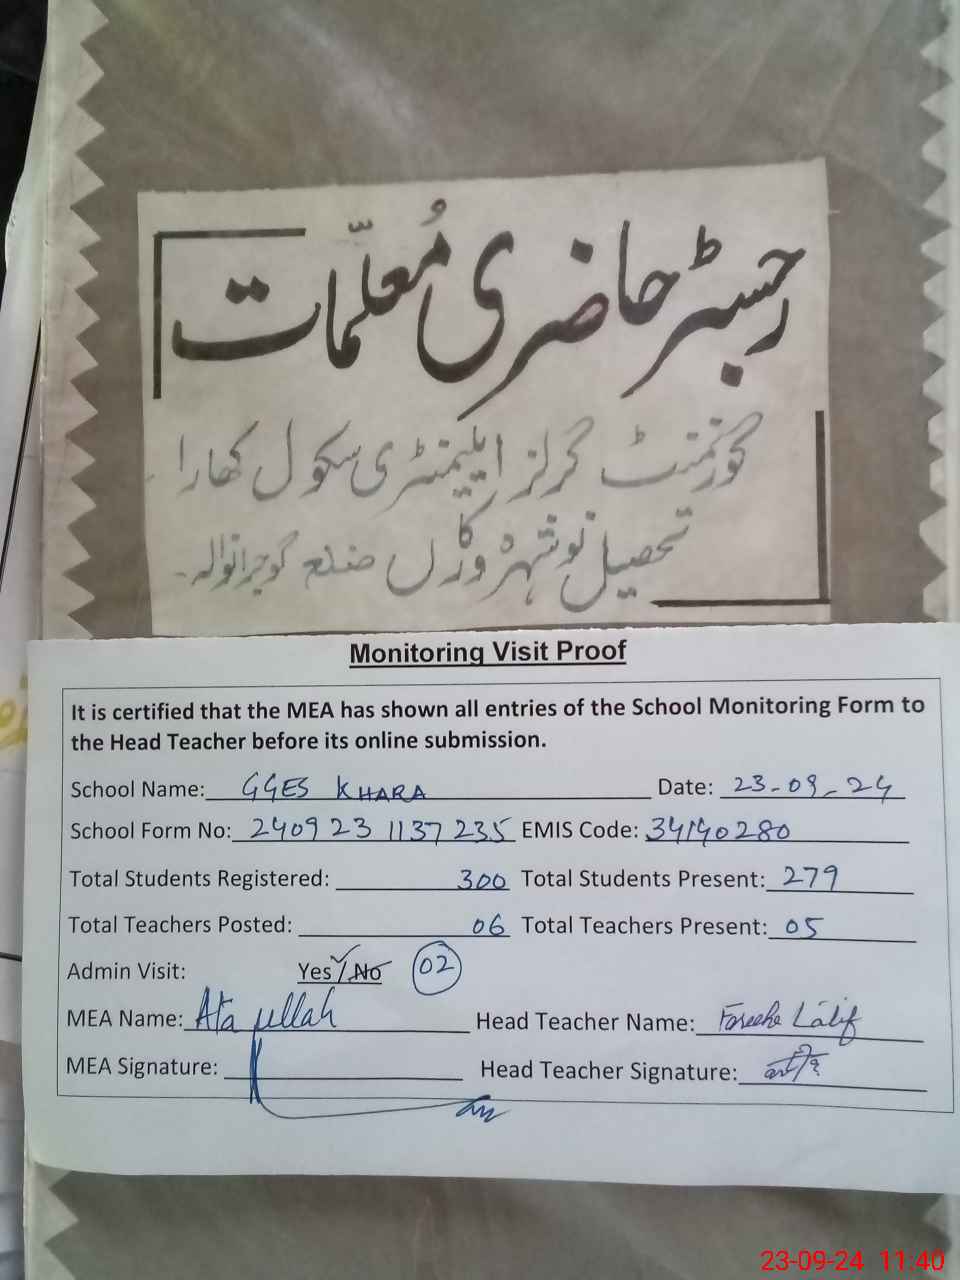 رجسٹر حاضری مُعلّمات
گورنمنٹ گرلز ایلیمنٹری سکول کھارا
تحصیل نوشہرہ ورکاں ضلع گوجرانوالہ۔
Monitoring Visit Proof
It is certified that the MEA has shown all entries of the School Monitoring Form to
the Head Teacher before its online submission.
School Name: GGES KHARA Date: 23-09-24
School Form No: 240923 1137 235 EMIS Code: 34140280
Total Students Registered: 300 Total Students Present: 279
Total Teachers Posted: 06 Total Teachers Present: 05
Admin Visit: Yes / No 02
MEA Name: Ata ullah Head Teacher Name: Fareeha Latif
MEA Signature: Head Teacher Signature:
23-09-24 11:40